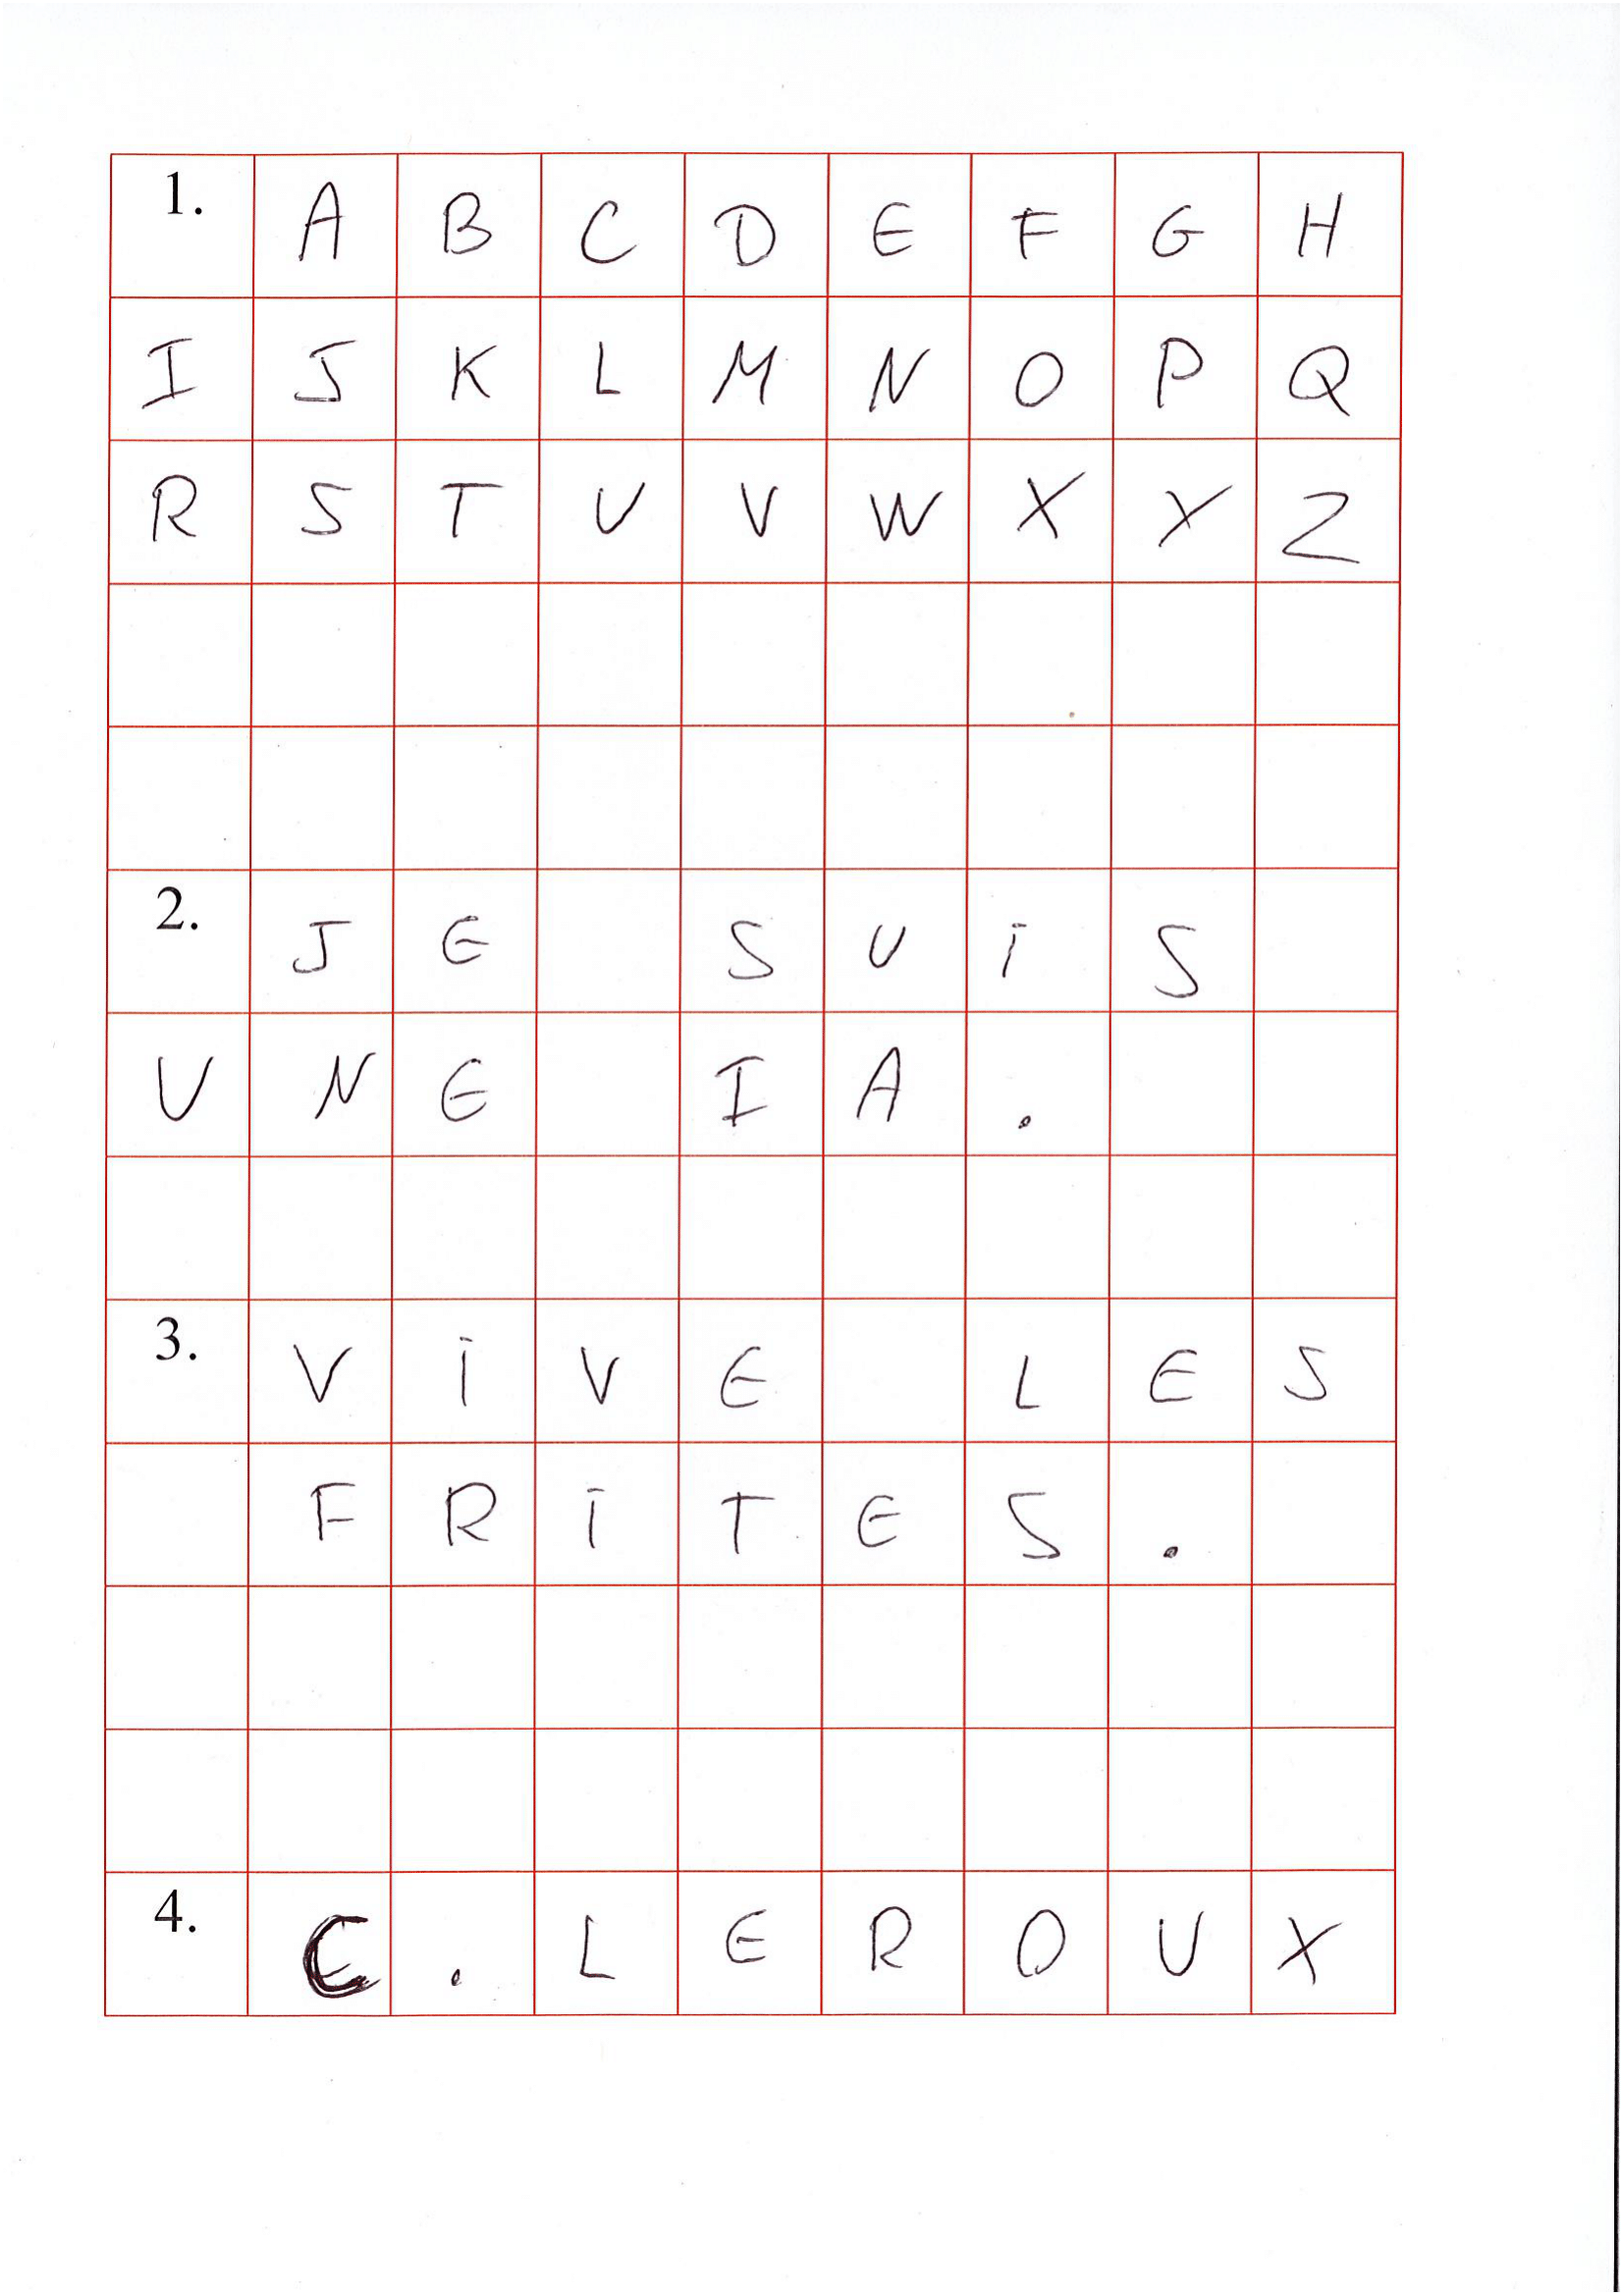 1. A B C D E F G H
I J K L M N O P Q
R S T U V W X Y Z
2. J E S U I S
U N E I A .
3. V I V E L E S
F R I T E S .
4. C . L E R O U X